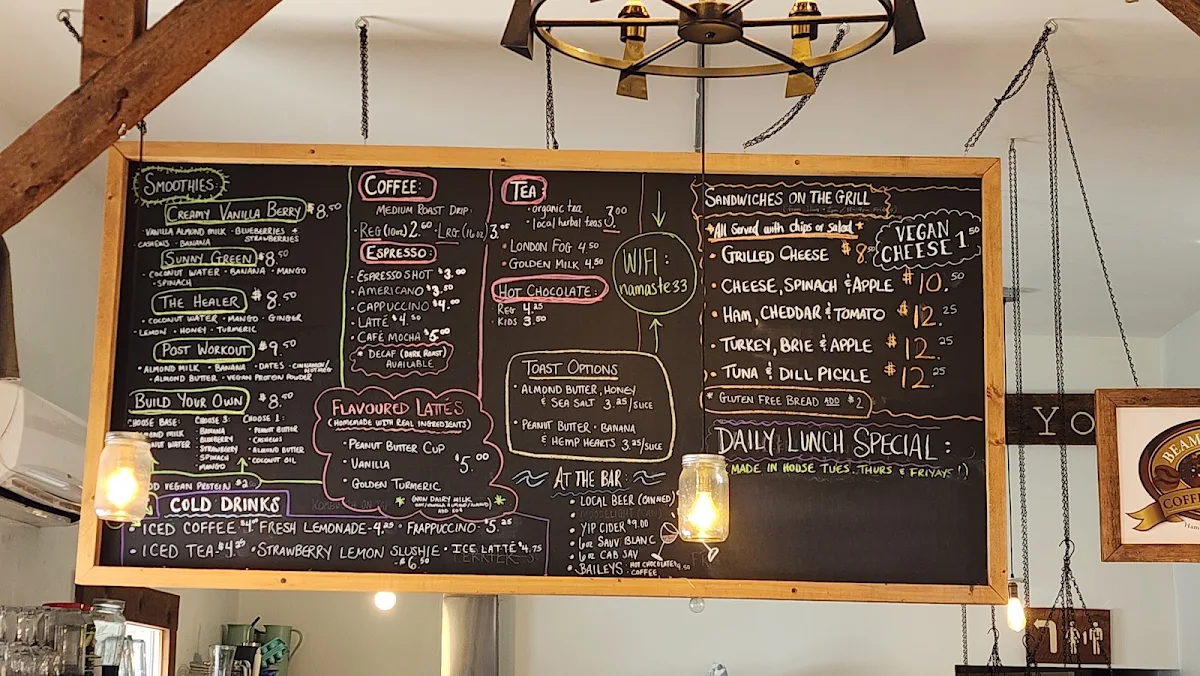 SMOOTHIES:
CREAMY VANILLA BERRY $8.50
· VANILLA ALMOND MILK · BLUEBERRIES · STRAWBERRIES
CASHEWS · BANANA
SUNNY GREEN $8.50
· COCONUT WATER · BANANA · MANGO
· SPINACH
THE HEALER $8.50
· COCONUT WATER · MANGO · GINGER
· LEMON · HONEY · TURMERIC
POST WORKOUT $9.50
· ALMOND MILK · BANANA · DATES
· ALMOND BUTTER · VEGAN PROTEIN POWDER
BUILD YOUR OWN $8.50
CHOOSE BASE: CHOOSE 3: CHOOSE 1:
MILK BANANA PEANUT BUTTER
WATER BLUEBERRY CASHEWS
STRAWBERRY ALMOND BUTTER
SPINACH COCONUT OIL
MANGO
VEGAN PROTEIN $2
COLD DRINKS
· ICED COFFEE · FRESH LEMONADE - 4.25 · FRAPPUCCINO - $5.25
· ICED TEA - $4.25 · STRAWBERRY LEMON SLUSHIE - $6.50 · ICE LATTÉ $4.75
COFFEE:
MEDIUM ROAST DRIP:
· REG (10oz) 2.60 · LRG. (16oz) 3.05
ESPRESSO:
· ESPRESSO SHOT $3.00
· AMERICANO $3.50
· CAPPUCCINO $4.00
· LATTÉ $4.50
· CAFÉ MOCHA $5.00
* DECAF (DARK ROAST)
AVAILABLE
FLAVOURED LATTÉS
(HOMEMADE WITH REAL INGREDIENTS)
· PEANUT BUTTER CUP
· VANILLA $5.00
· GOLDEN TURMERIC
(NON DAIRY MILK
TEA:
· organic tea
· local herbal teas 3.00
· LONDON FOG 4.50
· GOLDEN MILK 4.50
HOT CHOCOLATE:
REG 4.25
KIDS 3.50
WIFI:
namaste33
TOAST OPTIONS
· ALMOND BUTTER, HONEY
& SEA SALT 3.25/SLICE
· PEANUT BUTTER · BANANA
& HEMP HEARTS 3.25/SLICE
AT THE BAR:
· LOCAL BEER (CANNED)
· YIP CIDER $9.00
· 6oz SAUV BLANC
· 6oz CAB SAV
· BAILEYS · HOT CHOCOLATE
COFFEE
SANDWICHES ON THE GRILL
*All Served with chips or salad*
VEGAN
CHEESE 1.50
· GRILLED CHEESE $8.50
· CHEESE, SPINACH & APPLE $10.50
· HAM, CHEDDAR & TOMATO $12.25
· TURKEY, BRIE & APPLE $12.25
· TUNA & DILL PICKLE $12.25
* GLUTEN FREE BREAD ADD $2
DAILY LUNCH SPECIAL:
(MADE IN HOUSE TUES. THURS & FRIYAYS!)
YO
BEAM
COFFE